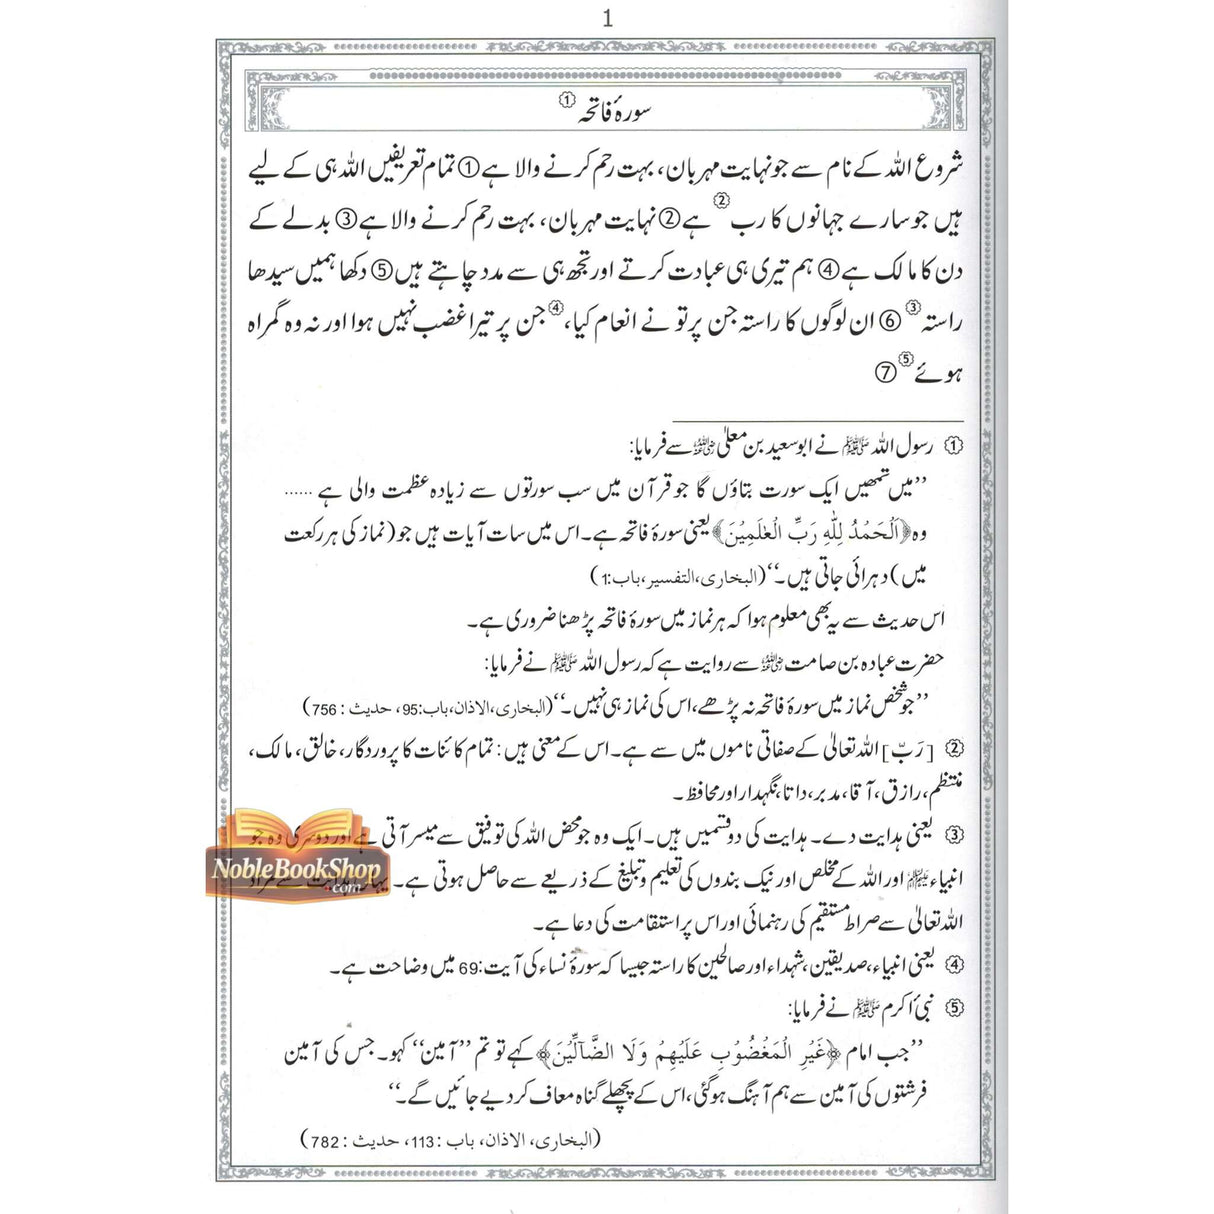 1
سورۂ فاتحہ ①
شروع اللہ کے نام سے جو نہایت مہربان، بہت رحم کرنے والا ہے ① تمام تعریفیں اللہ ہی کے لیے
ہیں جو سارے جہانوں کا رب ② ہے ② نہایت مہربان، بہت رحم کرنے والا ہے ③ بدلے کے
دن کا مالک ہے ④ ہم تیری ہی عبادت کرتے اور تجھ ہی سے مدد چاہتے ہیں ⑤ دکھا ہمیں سیدھا
راستہ ③ ⑥ ان لوگوں کا راستہ جن پر تو نے انعام کیا، ④ جن پر تیرا غضب نہیں ہوا اور نہ وہ گمراہ
ہوئے ⑤ ⑦
① رسول اللہ ﷺ نے ابو سعید بن معلیٰ رضی اللہ عنہ سے فرمایا:
’’میں تمھیں ایک سورت بتاؤں گا جو قرآن میں سب سورتوں سے زیادہ عظمت والی ہے ......
وہ ﴿اَلْحَمْدُ لِلّٰهِ رَبِّ الْعٰلَمِيْنَ﴾ یعنی سورۂ فاتحہ ہے۔ اس میں سات آیات ہیں جو (نماز کی ہر رکعت
میں) دہرائی جاتی ہیں۔‘‘ (البخاری، التفسیر، باب:1)
اس حدیث سے یہ بھی معلوم ہوا کہ ہر نماز میں سورۂ فاتحہ پڑھنا ضروری ہے۔
حضرت عبادہ بن صامت رضی اللہ عنہ سے روایت ہے کہ رسول اللہ ﷺ نے فرمایا:
’’جو شخص نماز میں سورۂ فاتحہ نہ پڑھے، اس کی نماز ہی نہیں۔‘‘ (البخاری، الاذان، باب:95، حدیث : 756)
② [رَبّ] اللہ تعالیٰ کے صفاتی ناموں میں سے ہے۔ اس کے معنی ہیں: تمام کائنات کا پروردگار، خالق، مالک،
منتظم، رازق، آقا، مدبر، داتا، نگہدار اور محافظ۔
③ یعنی ہدایت دے۔ ہدایت کی دو قسمیں ہیں۔ ایک وہ جو محض اللہ کی توفیق سے میسر آتی ہے اور دوسری وہ جو
انبیاء علیہم السلام اور اللہ کے مخلص اور نیک بندوں کی تعلیم و تبلیغ کے ذریعے سے حاصل ہوتی ہے۔ یہاں ہدایت سے مراد
اللہ تعالیٰ سے صراط مستقیم کی رہنمائی اور اس پر استقامت کی دعا ہے۔
④ یعنی انبیاء، صدیقین، شہداء اور صالحین کا راستہ جیسا کہ سورۂ نساء کی آیت:69 میں وضاحت ہے۔
⑤ نبی ٔاکرم ﷺ نے فرمایا:
’’جب امام ﴿غَيْرِ الْمَغْضُوْبِ عَلَيْهِمْ وَلَا الضَّآلِّيْنَ﴾ کہے تو تم ’’آمین‘‘ کہو۔ جس کی آمین
فرشتوں کی آمین سے ہم آہنگ ہو گئی، اس کے پچھلے گناہ معاف کر دیے جائیں گے۔‘‘
(البخاری، الاذان، باب :113، حدیث : 782)
NobleBookShop
.com